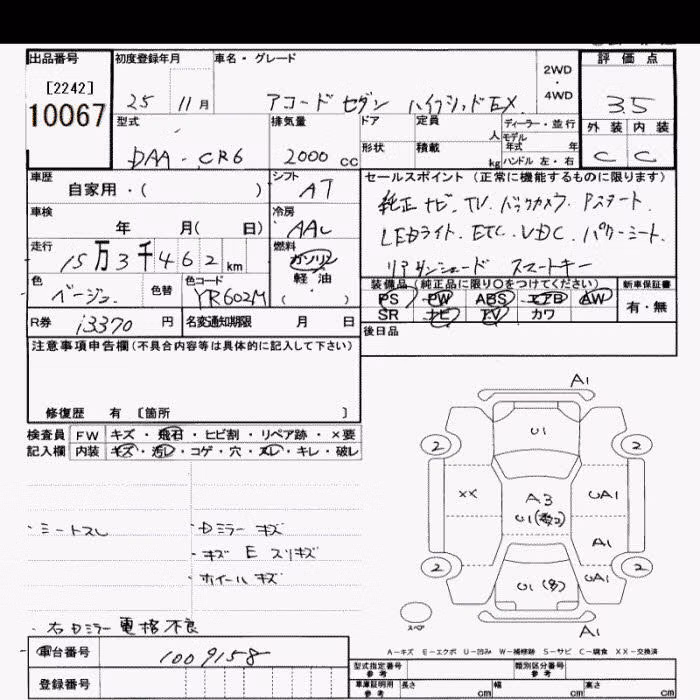 出品番号
[2242]
10067
初度登録年月
25 11月
車名・グレード
アコードセダン ハイブリッドEX
2WD
・
4WD
評価点
3.5
外装 内装
C C
型式
DAA-CR6
排気量
2000 cc
ドア
形状
定員
人
積載
kg
ディーラー・並行
モデル
年式 年
ハンドル 左・右
車歴
自家用・( )
シフト
AT
車検
年 月( 日)
冷房
AAC
走行
15万3千462km
燃料
ガソリン
軽油
( )
色
ベージュ
色替
色コード
YR602M
R券
13370円
名変通知期限 月 日
セールスポイント(正常に機能するものに限ります)
純正ナビ.TV.バックカメラ.Pスタート.
LEDライト.ETC.VDC.パワーシート.
リアサンシェード スマートキー
装備品(純正品に限り○をつけてください)
PS PW ABS エアB AW
SR ナビ TV カワ
新車保証書
有・無
後日品
注意事項申告欄(不具合内容等は具体的に記入して下さい)
修復歴 有 〔箇所 〕
検査員
記入欄
FW キズ・飛石・ヒビ割・リペア跡・×要
内装 キズ・汚レ・コゲ・穴・スレ・キレ・破レ
・シートスレ
・Dミラーキズ
・キズ E スリキズ
・ホイールキズ
・右Dミラー電格不良
A1
U1
2 2
XX
A3
U1(数コ)
UA1
A1
2 2
U1(多)
UA1
スペア
A1
A-キズ E-エクボ U-凹み W-補修跡 S-サビ C-腐食 XX-交換済
車台番号
1009158
登録番号
型式指定番号
参考
類別区分番号
参考
車庫証明用
参考
長さ cm
幅 cm
高さ cm